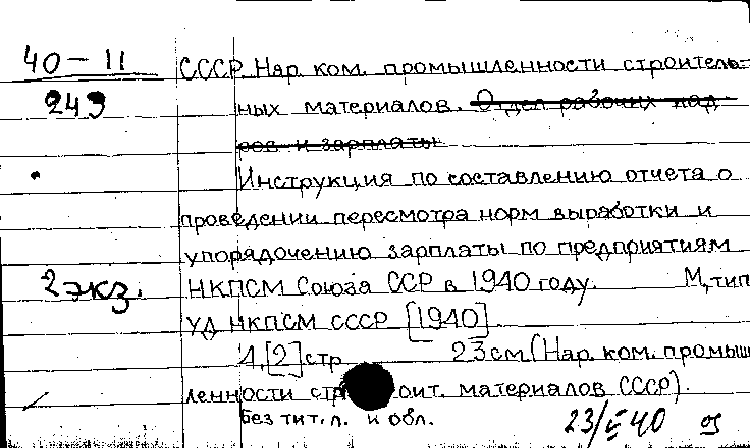 40-11
249
СССР. Нар. ком. промышленности строитель-
ных материалов. Отдел рабочих кад-
ров и зарплаты
Инструкция по составлению отчета о
проведении пересмотра норм выработки и
упорядочению зарплаты по предприятиям
2 экз.
НКПСМ Союза ССР в 1940 году. М, тип
УД НКПСМ СССР [1940]
1,[2] стр 23 см (Нар. ком. промыш
ленности оит. материалов СССР).
Без тит. л. и обл.
23/ 40